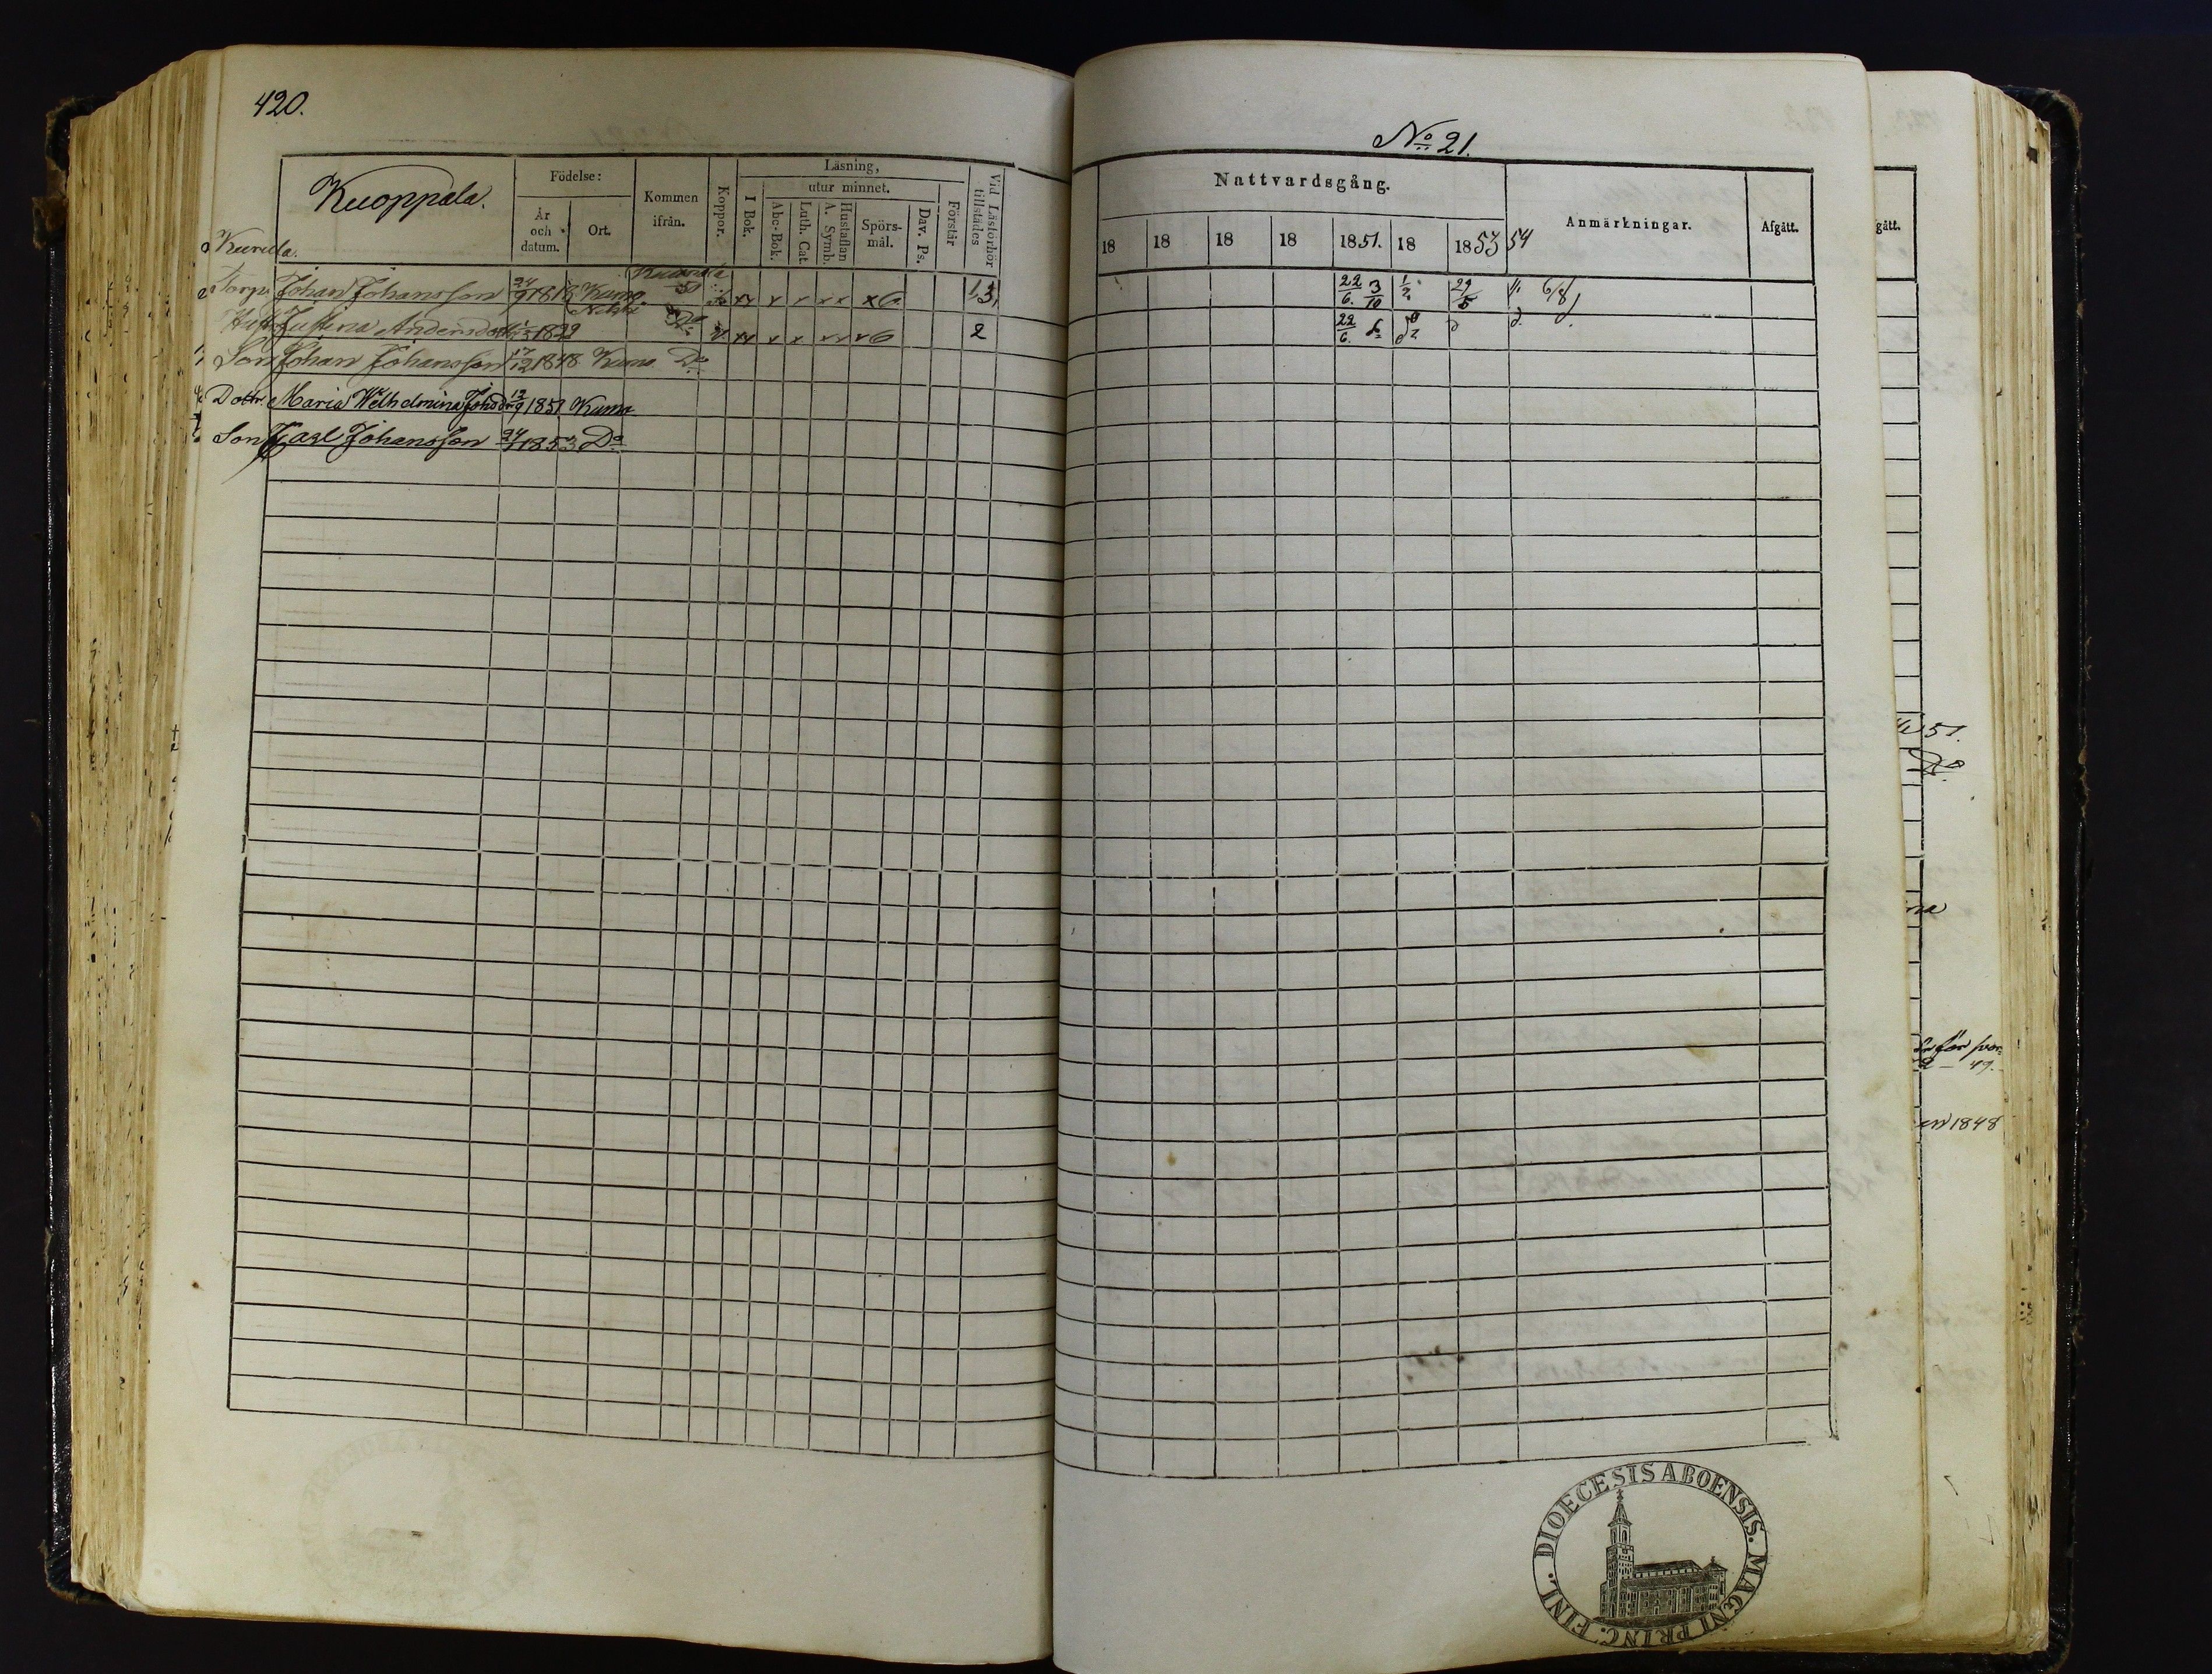 420.
No 21.
Kuoppala.
Födelse:
År och datum.
Ort.
Kommen ifrån.
Koppor.
Läsning,
I Bok.
utur minnet.
Abc-Bok.
Luth. Cat.
Hustaflan A. Symb.
Spörsmål.
Dav. Ps.
Förstår
Vid Läsförhör tillstädes
Nattvardsgång.
18 18 18 18 1851. 18 1853 54
Anmärkningar.
Afgått.
gått.
Torp. Johan Johansson 24/9 1818 Kumo 51 x x x x x x 6 1,3, 22/6. 3/10 1/2 29/5 6/8
Hustr Justina Andersdotr 1829 Do x x x x x x 6 2 22/6.
Son Johan Johansson 17/12 1848 Kumo Do
Dottr. Maria Wilhelmina Johsdr 12/9 1851 Kumo
Son Carl Johansson 24/1 1853 Do
51.
Do
na
för
2 - 49.
1848
DIOECESIS ABOENSIS. MAGNI PRINC. FINL.